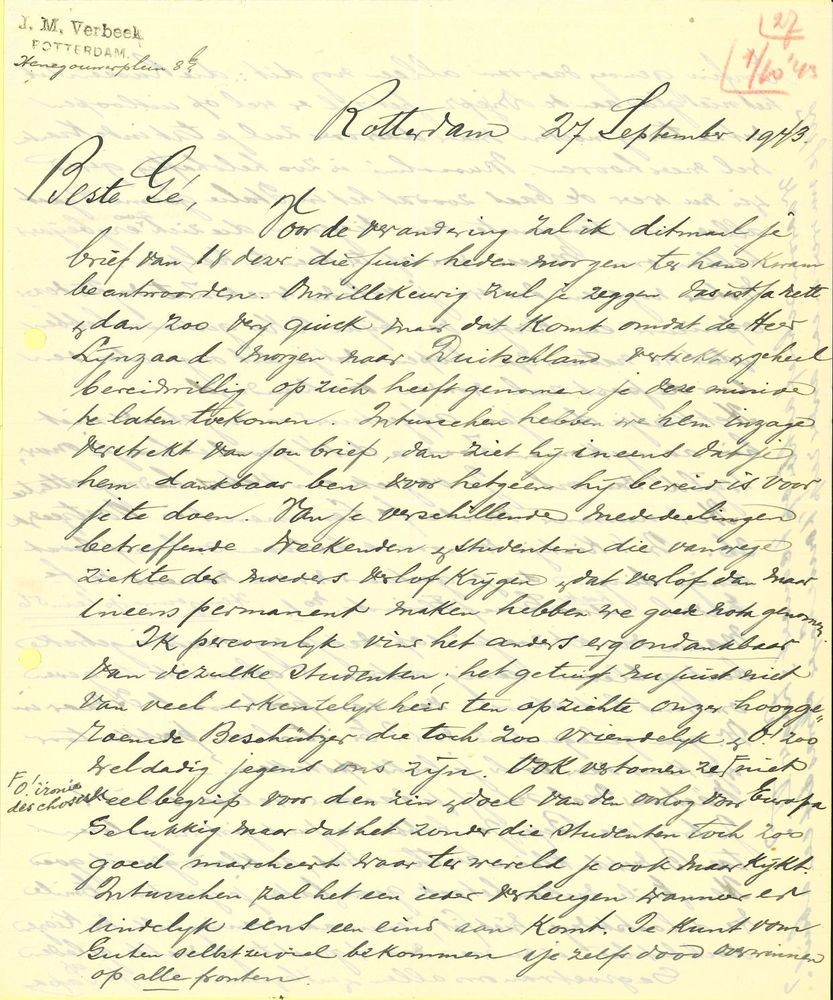 J. M. Verbeek
ROTTERDAM.
Henegouwerplein 8b
27
1/10 '43
Rotterdam 27 September 1943.
Beste Gé,
Voor de verandering zal ik ditmaal je
brief van 18 dezer die juist heden morgen ter hand kwam
beantwoorden. Onwillekeurig zul je zeggen das ist ja nett
& dan zoo very quick maar dat komt omdat de Heer
Lijnzaad morgen naar Duitschland vertrekt & geheel
bereidwillig op zich heeft genomen je deze missive
te laten toekomen. Intusschen hebben we hem inzage
verstrekt van jou brief, dan ziet hij ineens dat je
hem dankbaar ben voor hetgeen hij bereid is voor
je te doen. Van je verschillende mededeelingen
betreffende weekenden & studenten die vanwege
ziekte der moeders verlof krijgen & dat verlof dan maar
ineens permanent maken hebben we goede nota genomen.
Ik persoonlijk vind het anders erg ondankbaar
van dezulke studenten; het getuigt nu juist niet
van veel erkentelijkheid ten opzichte onzer hoogge-
roemde Beschützer die toch zoo vriendelijk & O! zoo
weldadig jegens ons zijn. Ook vertoonen ze F niet
F O! ironie
des choses
veel begrip voor den zin & doel van den oorlog voor Europa
Gelukkig maar dat het zonder die studenten toch zoo
goed marcheert waar ter wereld je ook maar kijkt.
Intusschen zal het een ieder verheugen wanneer er
eindelijk eens een eind aan komt. Je kunt vom
Guten selbst zuviel bekommen & je zelf dood overwinnen
op alle fronten.